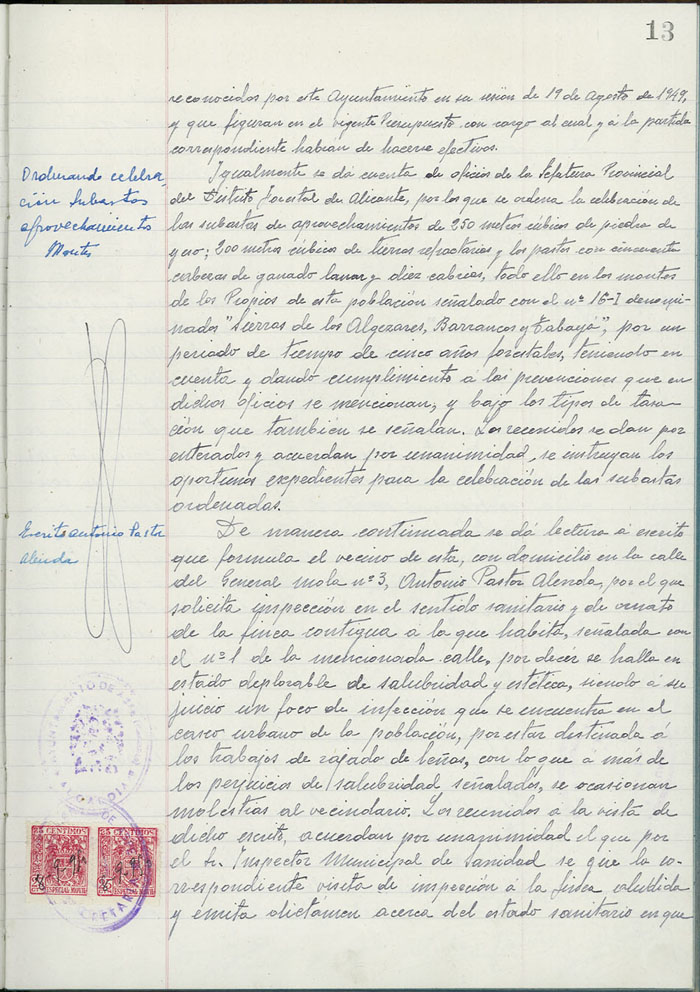 13
reconocidos por este Ayuntamiento en su sesión de 19 de Agosto de 1949,
y que figuran en el vigente Presupuesto con cargo al cual y á la partida
correspondiente habian de hacerse efectivos.
Ordenando celebra-
ción subastas
aprovechamiento
Montes
Igualmente se dá cuenta de oficios de la Jefatura Provincial
del Distrito Forestal de Alicante, por los que se ordena la celebración de
las subastas de aprovechamientos de 250 metros cúbicos de piedra de
yeso; 200 metros cúbicos de tierras refractarias y los pastos con cincuenta
cabezas de ganado lanar y diez cabrias, todo ello en los montes
de los Propios de esta población señalado con el nº 16-I denomi-
nados "Sierras de los Algezares, Barrancos y Tabayá", por un
periodo de tiempo de cinco años forestales, teniendo en
cuenta y dando cumplimiento á las prevenciones que en
dichos oficios se mencionan, y bajo los tipos de tasa-
ción que también se señalan. Los reunidos se dan por
enterados y acuerdan por unanimidad, se instruyan los
oportunos expedientes para la celebración de las subastas
ordenadas.
Escrito Antonio Pastor
Alenda
De manera continuada se dá lectura á escrito
que formula el vecino de esta, con domicilio en la calle
del General Mola nº 3, Antonio Pastor Alenda, por el que
solicita inspección en el sentido sanitario y de ornato
de la finca contigua á la que habita, señalada con
el nº 1 de la mencionada calle, por decir se halla en
estado deplorable de salubridad y estética, siendo á su
juicio un foco de infección que se encuentra en el
casco urbano de la población, por estar destinada á
los trabajos de rajado de leñas, con lo que á más de
los perjuicios de salubridad señalados, se ocasionan
molestias al vecindario. Los reunidos á la vista de
dicho escrito, acuerdan por unanimidad el que por
el Sr. Inspector Municipal de Sanidad se que la co-
rrespondiente visita de inspección á la finca aludida
y emita dictámen acerca del estado sanitario en que
AYUNTAMIENTO DE
ALCALDIA
25 CENTIMOS
25 CENTIMOS
SECRETARIA